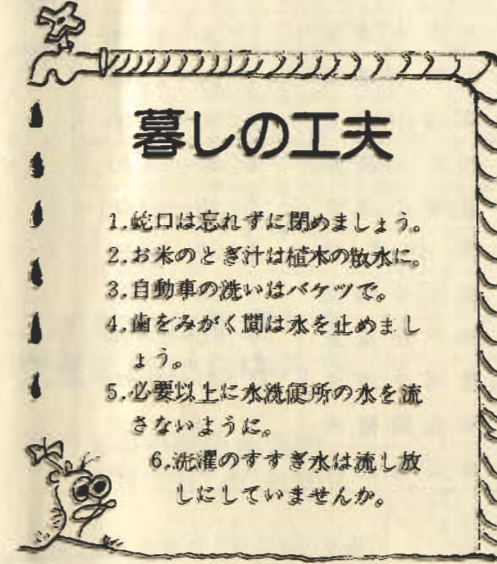 暮しの工夫
1.蛇口は忘れずに閉めましょう。
2.お米のとぎ汁は植木の散水に。
3.自動車の洗いはバケツで。
4.歯をみがく間は水を止めまし
ょう。
5.必要以上に水洗便所の水を流
さないように。
6.洗濯のすすぎ水は流し放
しにしていませんか。